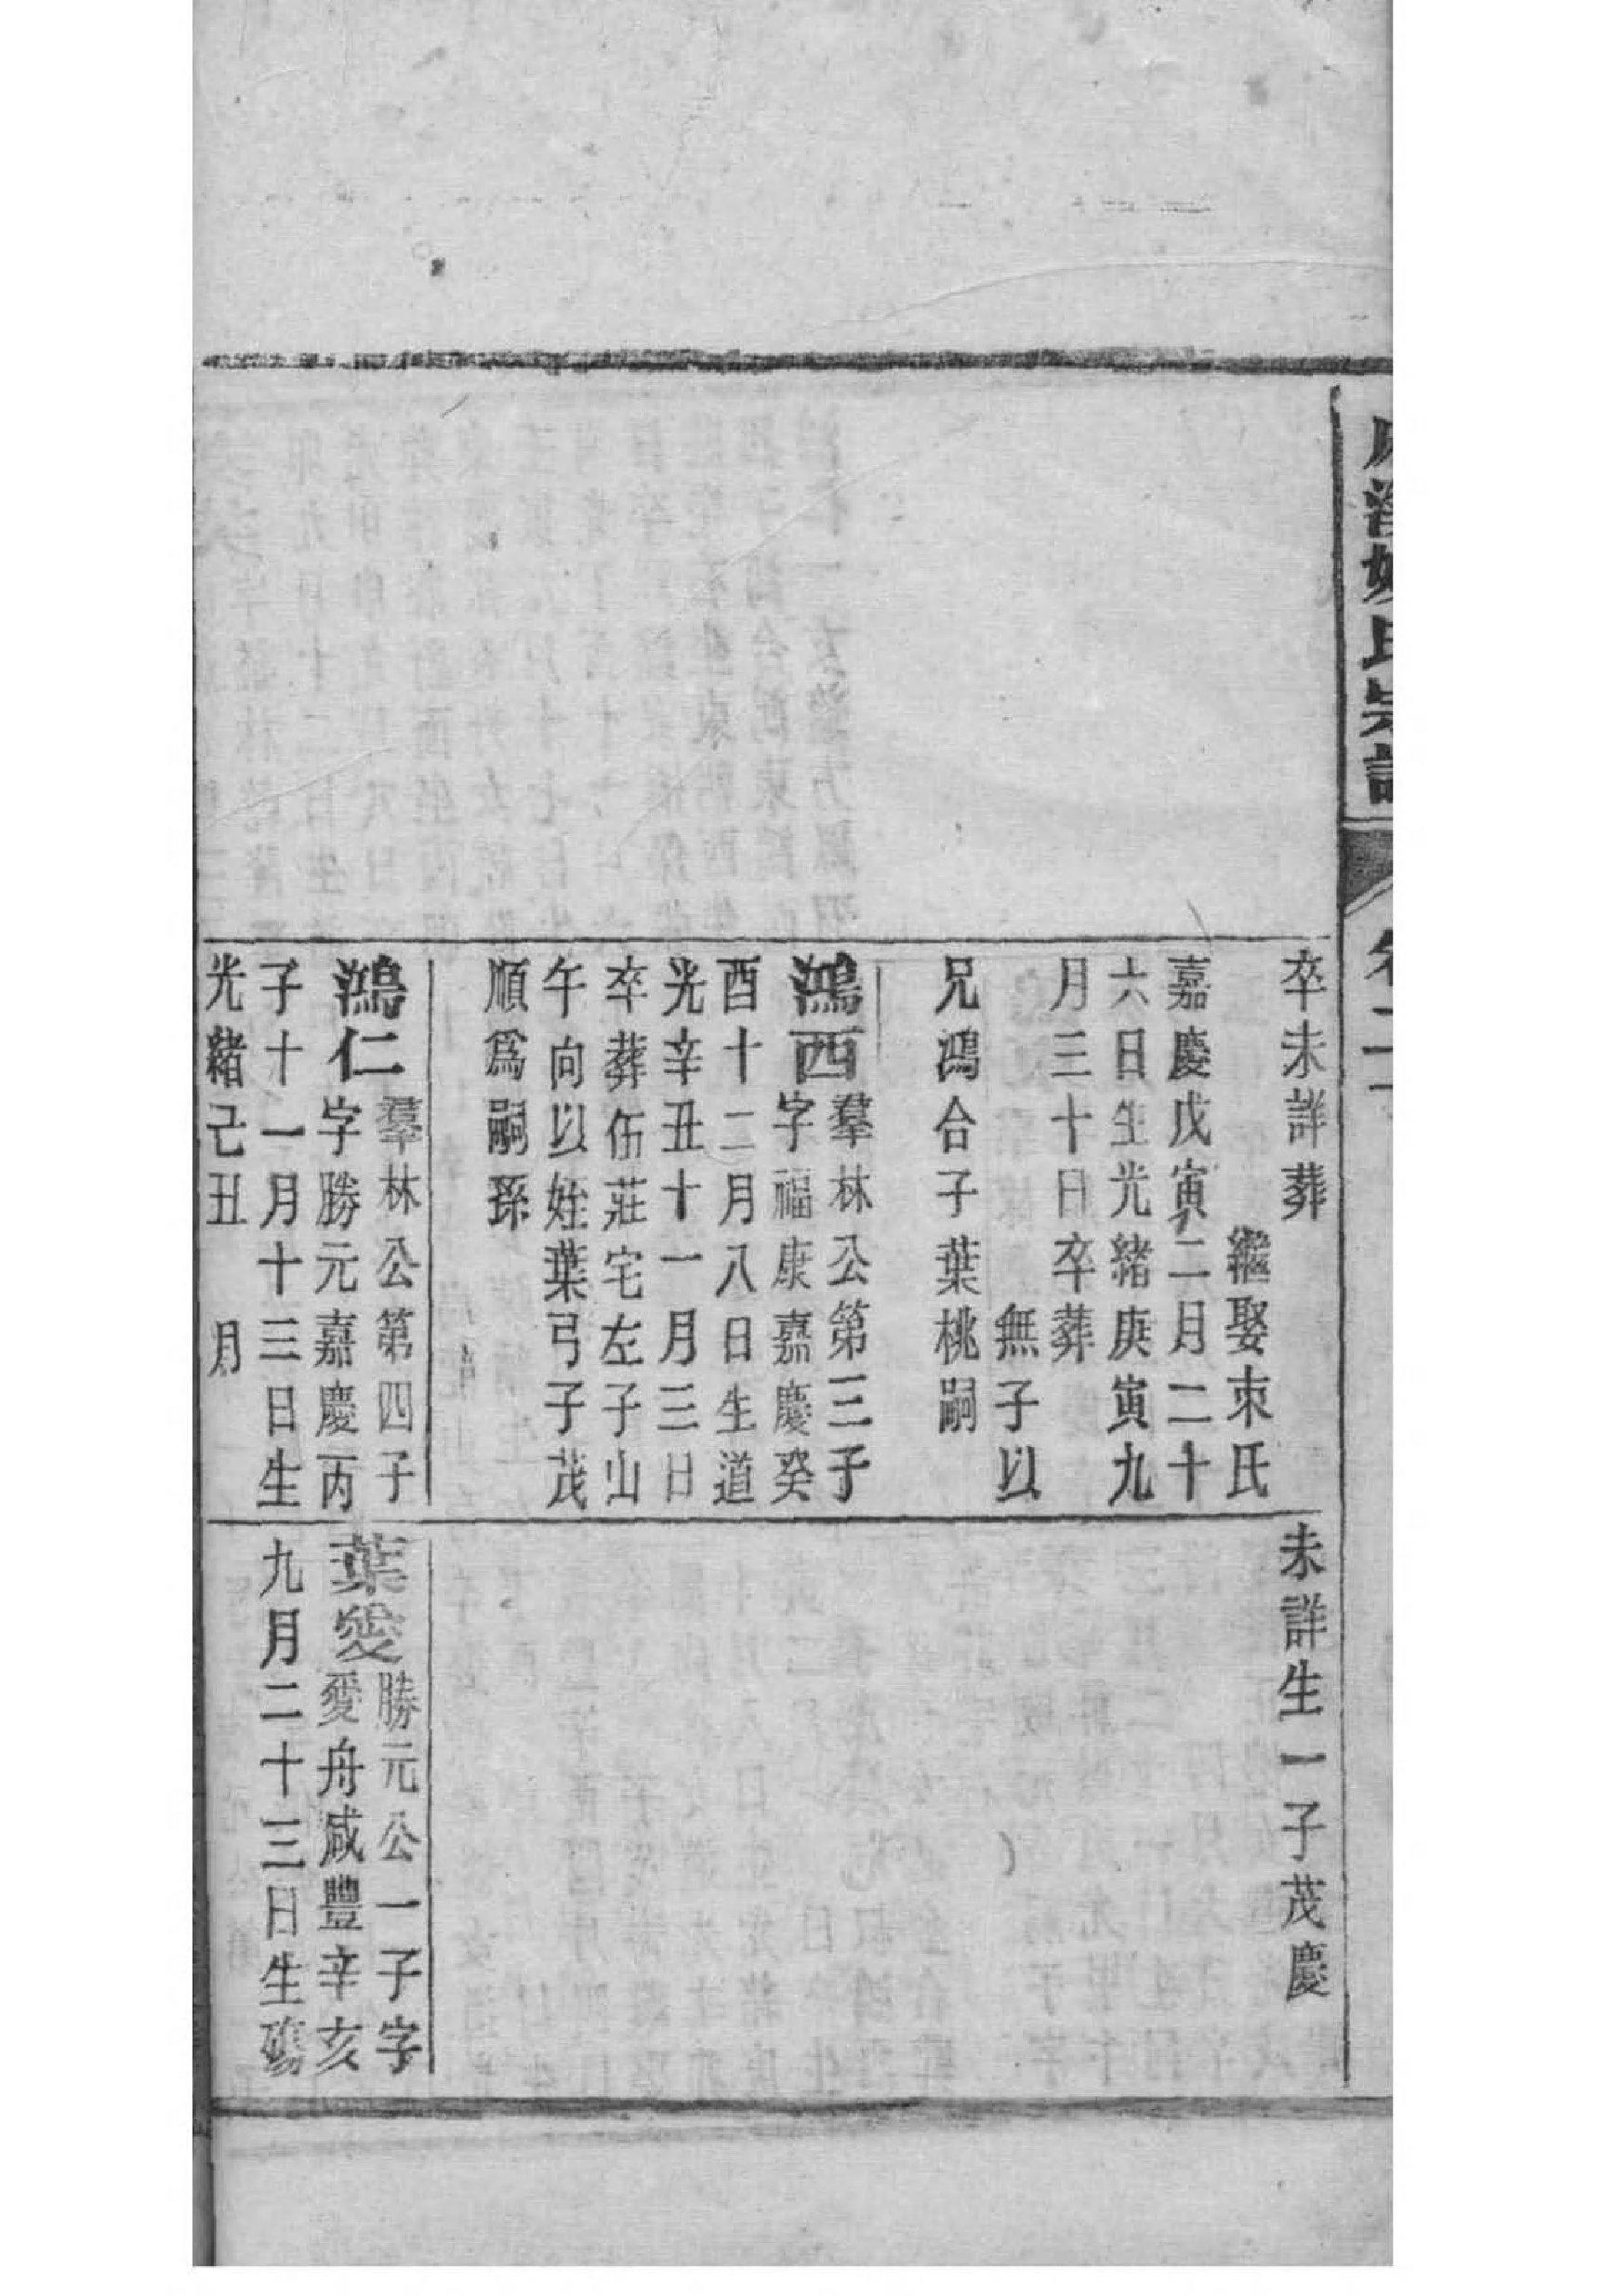 氏宗譜
卷二十
卒未詳葬
繼娶朿氏
嘉慶戊寅二月二十
六日生光緒庚寅九
月三十日卒葬
無子以
兄鴻合子葉桃嗣
鴻西羣林公第三子
字福康嘉慶癸
酉十二月八日生道
光辛丑十一月三日
卒葬伍莊宅左子山
午向以姪葉弓子茂
順爲嗣孫
鴻仁羣林公第四子
字勝元嘉慶丙
子十一月十三日生
光緒己丑 月
未詳生一子茂慶
葉愛勝元公一子字
愛舟咸豐辛亥
九月二十三日生殤